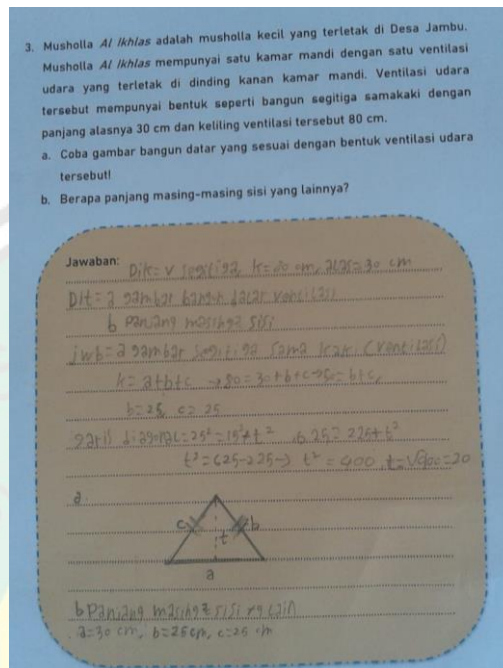 3. Musholla Al Ikhlas adalah musholla kecil yang terletak di Desa Jambu.
Musholla Al Ikhlas mempunyai satu kamar mandi dengan satu ventilasi
udara yang terletak di dinding kanan kamar mandi. Ventilasi udara
tersebut mempunyai bentuk seperti bangun segitiga samakaki dengan
panjang alasnya 30 cm dan keliling ventilasi tersebut 80 cm.
a. Coba gambar bangun datar yang sesuai dengan bentuk ventilasi udara
tersebut!
b. Berapa panjang masing-masing sisi yang lainnya?
Jawaban: Dik= v segitiga, k=80 cm, alas=30 cm
Dit= a gambar bangun datar ventilasi
b panjang masing2 sisi
jwb= a gambar segitiga sama kaki (ventilasi)
k= a+b+c → 80= 30+b+c → 50= b+c,
b=25, c= 25
garis diagonal= 25² = 15²+t² 625= 225+t²
t²= 625-225 → t² = 400, t=√400=20
a.
c b
t
a
b panjang masing2 sisi yg lain
a=30 cm, b=25cm, c=25 cm